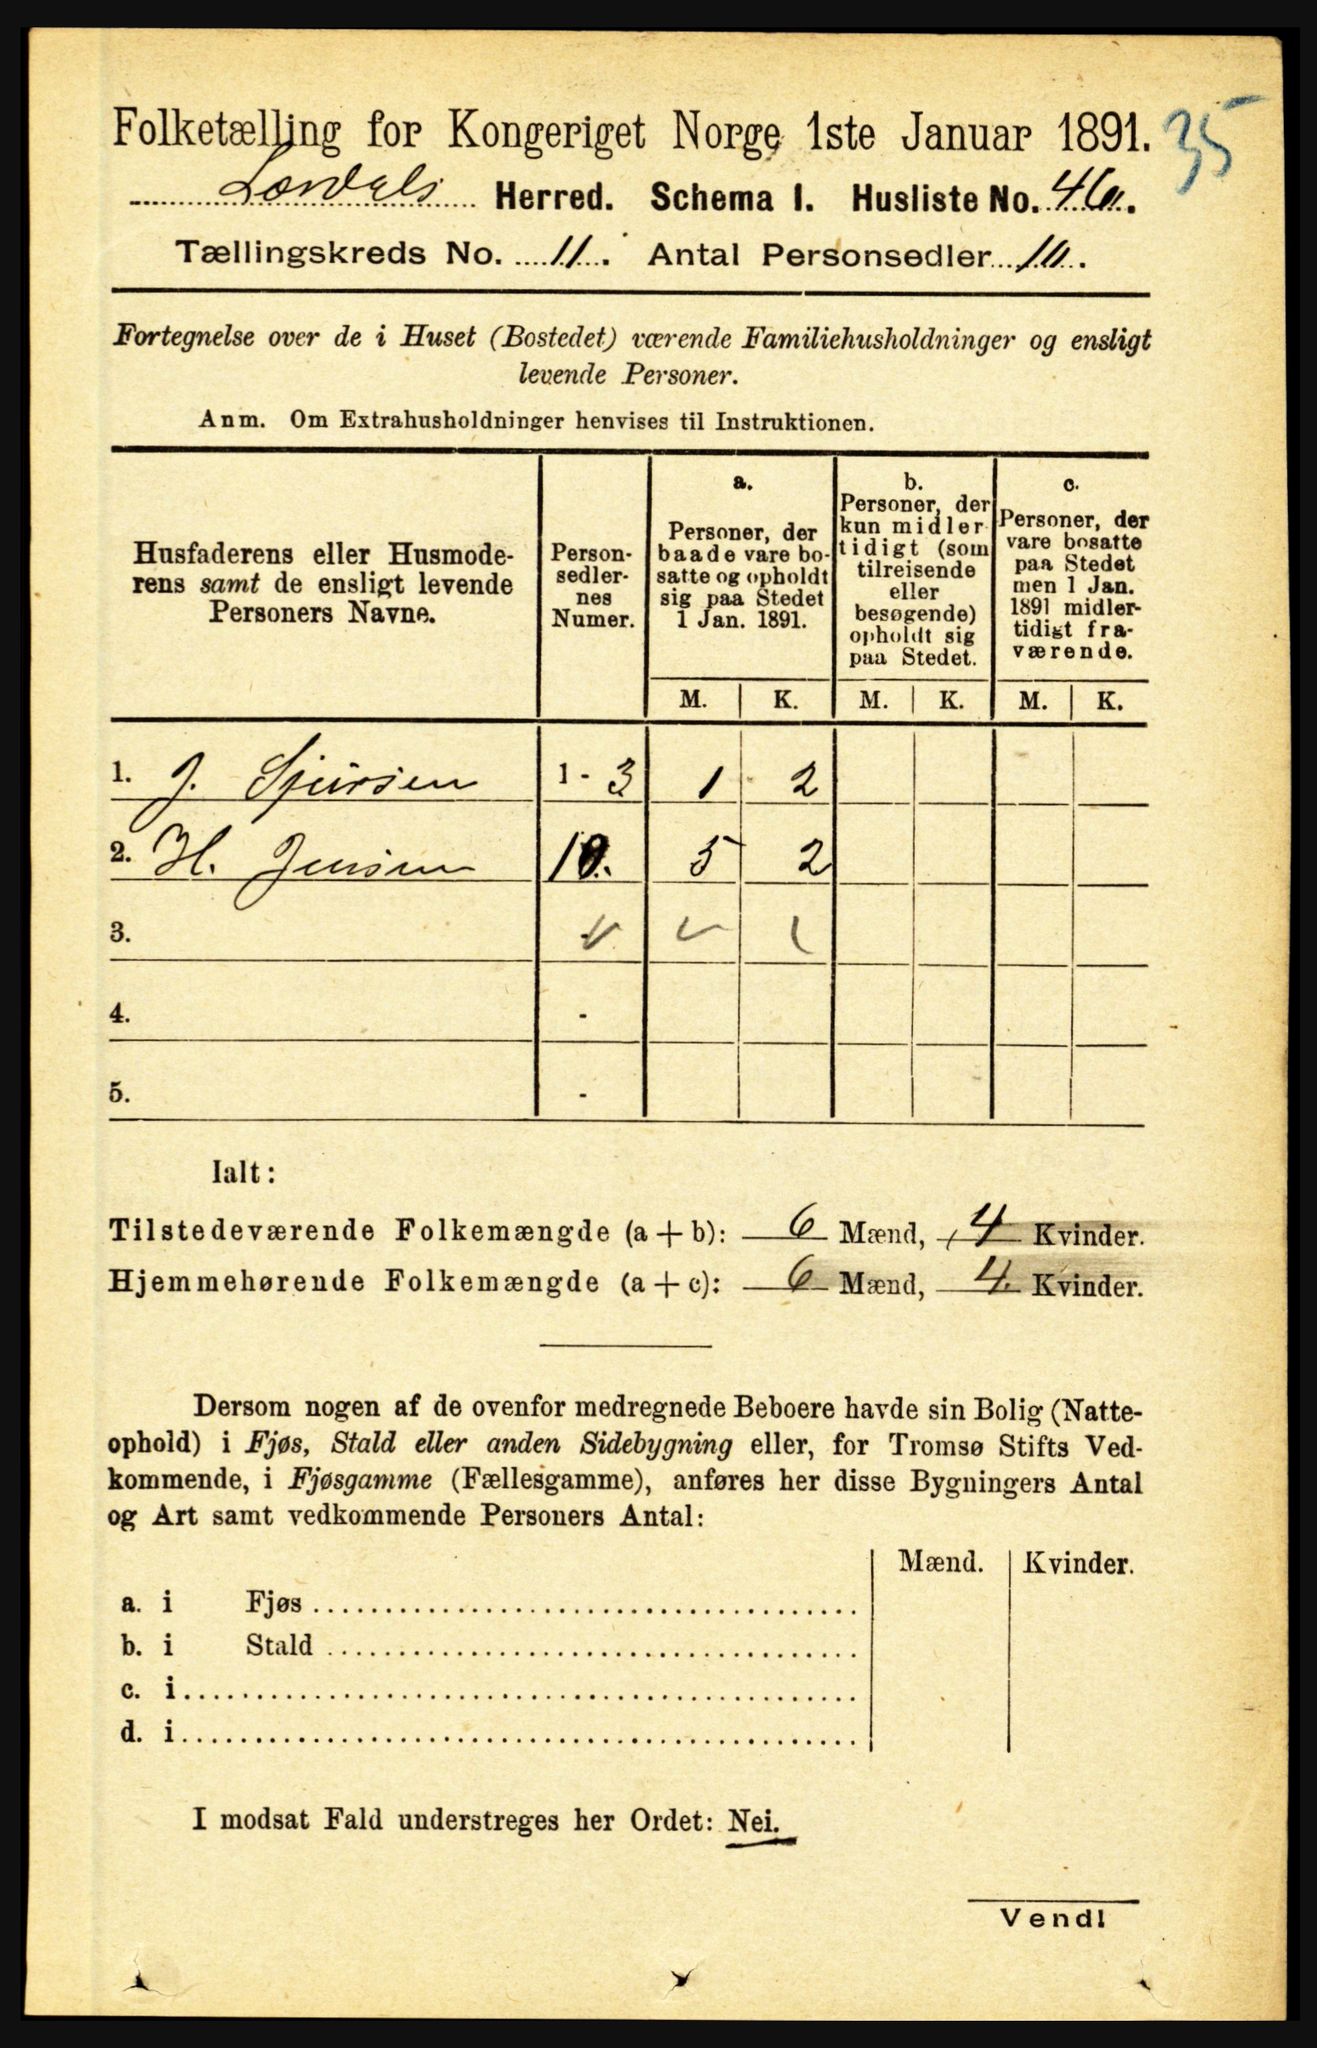 35
Folketælling for Kongeriget Norge 1ste Januar 1891.
Lærdals Herred. Schema I. Husliste No. 46.
Tællingskreds No. 11. Antal Personsedler 10.
Fortegnelse over de i Huset (Bostedet) værende Familiehusholdninger og ensligt
levende Personer.
Anm. Om Extrahusholdninger henvises til Instruktionen.
Husfaderens eller Husmode-
rens samt de ensligt levende
Personers Navne.
Person-
sedler-
nes
Numer.
a.
Personer, der
baade vare bo-
satte og opholdt
sig paa Stedet
1 Jan. 1891.
b.
Personer, der
kun midler
tidigt (som
tilreisende
eller
besøgende)
opholdt sig
paa Stedet.
c.
Personer, der
vare bosatte
paa Stedet
men 1 Jan.
1891 midler-
tidigt fra-
værende.
M. K. M. K. M. K.
1. J. Sjursen 1 - 3 1 2
2. H. Jensen 10. 5 2
3.
4. -
5. -
Ialt:
Tilstedeværende Folkemængde (a + b): 6 Mænd, 4 Kvinder.
Hjemmehørende Folkemængde (a + c): 6 Mænd, 4. Kvinder.
Dersom nogen af de ovenfor medregnede Beboere havde sin Bolig (Natte-
ophold) i Fjøs, Stald eller anden Sidebygning eller, for Tromsø Stifts Ved-
kommende, i Fjøsgamme (Fællesgamme), anføres her disse Bygningers Antal
og Art samt vedkommende Personers Antal:
Mænd. Kvinder.
a. i Fjøs
b. i Stald
c. i
d. i
I modsat Fald understreges her Ordet: Nei.
Vend!